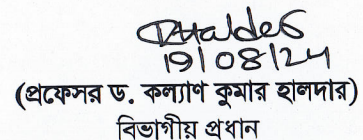 Khalder
19/08/24
(প্রফেসর ড. কল্যাণ কুমার হালদার)
বিভাগীয় প্রধান